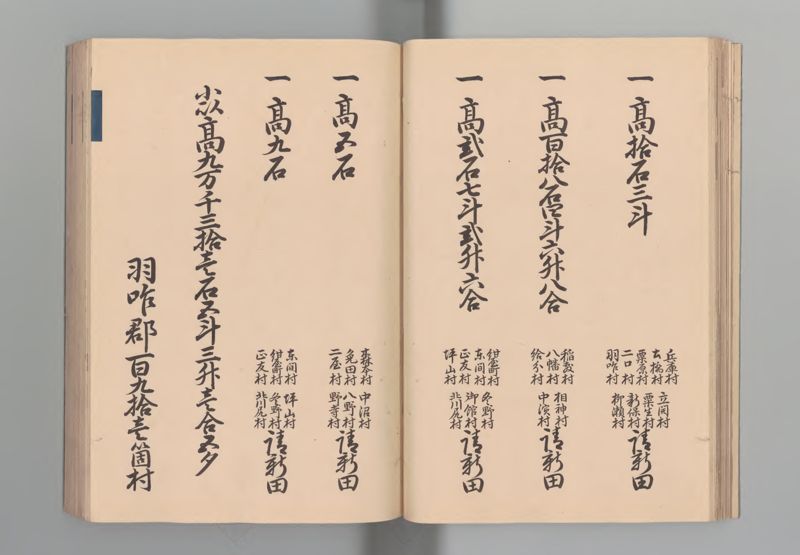 一高拾石三斗
兵庫村
大橋村
粟原村
二口村
羽咋村
立開村
粟生村
新保村
柳瀬村
請新田
一高百拾八石四斗六升八合
稲敷村
八幡村
給分村
相神村
中浜村
請新田
一高弐石七斗弐升六合
紺屋町村
東間村
正友村
坪山村
冬野村
御館村
北川尻村
請新田
一高五石
森本村
免田村
二屋村
中沼村
八野村
野寺村
請新田
一高九石
東間村
紺屋町村
正友村
坪山村
冬野村
北川尻村
請新田
小以高九万千三拾壱石五斗三升壱合五夕
羽咋郡百九拾壱箇村